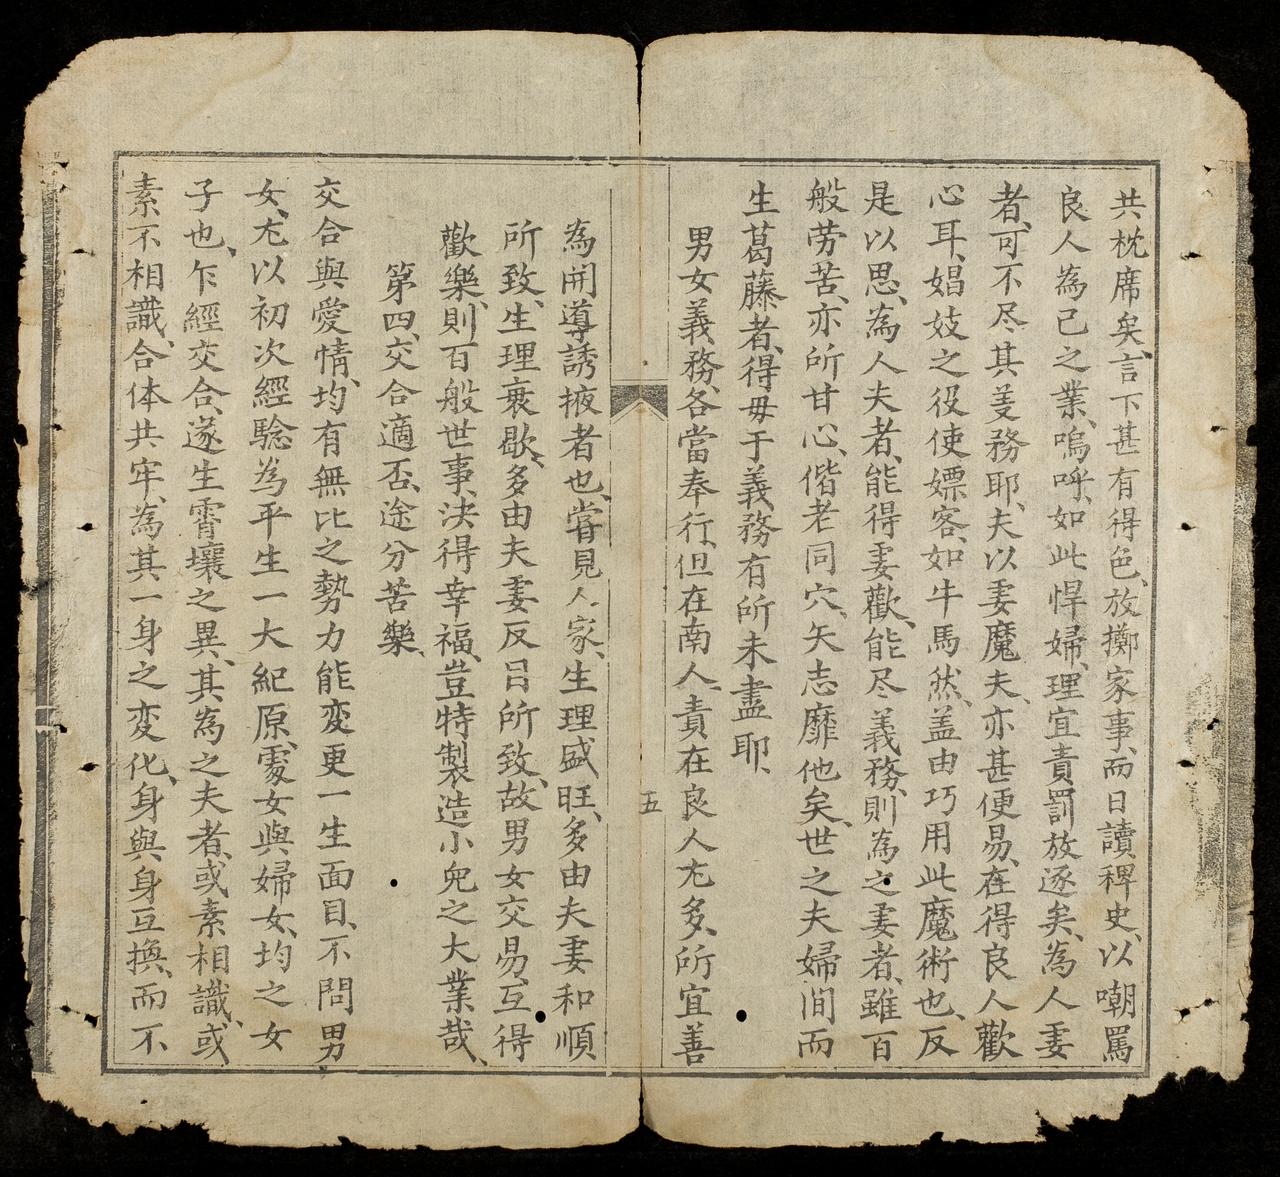 共枕席矣、言下甚有得色、放擲家事、而日讀稗史、以嘲罵
良人為己之業、嗚呼、如此悍婦、理宜責罰放逐矣、為人妻
者、可不尽其義務耶、夫以妻魔夫、亦甚便易、在得良人歡
心耳、娼妓之役使嫖客、如牛馬然、盖由巧用此魔術也、反
是以思、為人夫者、能得妻歡、能尽義務、則為之妻者、雖百
般劳苦、亦所甘心、偕老同穴、矢志靡他矣、世之夫婦间而
生葛藤者、得毋于義務有所未盡耶、
男女義務、各當奉行、但在南人、責在良人尤多、所宜善
五
為開導誘掖者也、嘗見人家、生理盛旺、多由夫妻和順
所致、生理衰歇、多由夫妻反目所致、故男女交易、互得
歡樂、則百般世事、決得幸福、豈特製造小兒之大業哉、
第四、交合適否、途分苦樂、
交合與愛情、均有無比之勢力能变更一生面目、不問男
女、尤以初次經驗為平生一大紀原、䖏女與婦女、均之女
子也、乍經交合、遂生霄壤之異、其為之夫者、或素相識、或
素不相識、合体共牢、為其一身之变化、身與身互換、而不